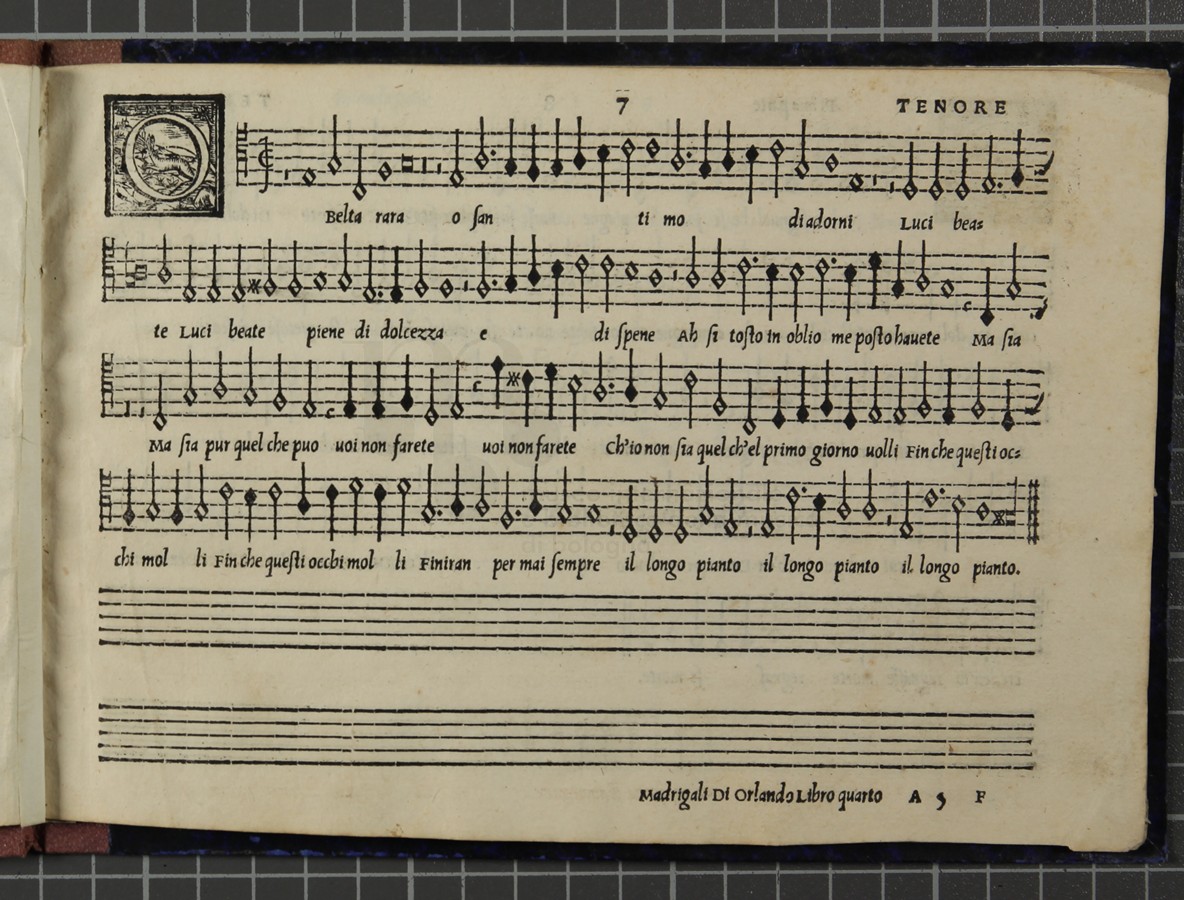 7 TENORE
O
Belta rara o ſan ti mo di adorni Luci bea=
te Luci beate piene di dolcezza e di ſpene Ah ſi toſto in oblio me poſto hauete Ma ſia
Ma ſia pur quel che puo uoi non farete uoi non farete Ch'io non ſia quel ch'el primo giorno uolli Fin che queſti oc=
chi mol li Fin che queſti occhi mol li Finiran per mai ſempre il longo pianto il longo pianto il longo pianto.
Madrigali Di Orlando Libro quarto A 5 F